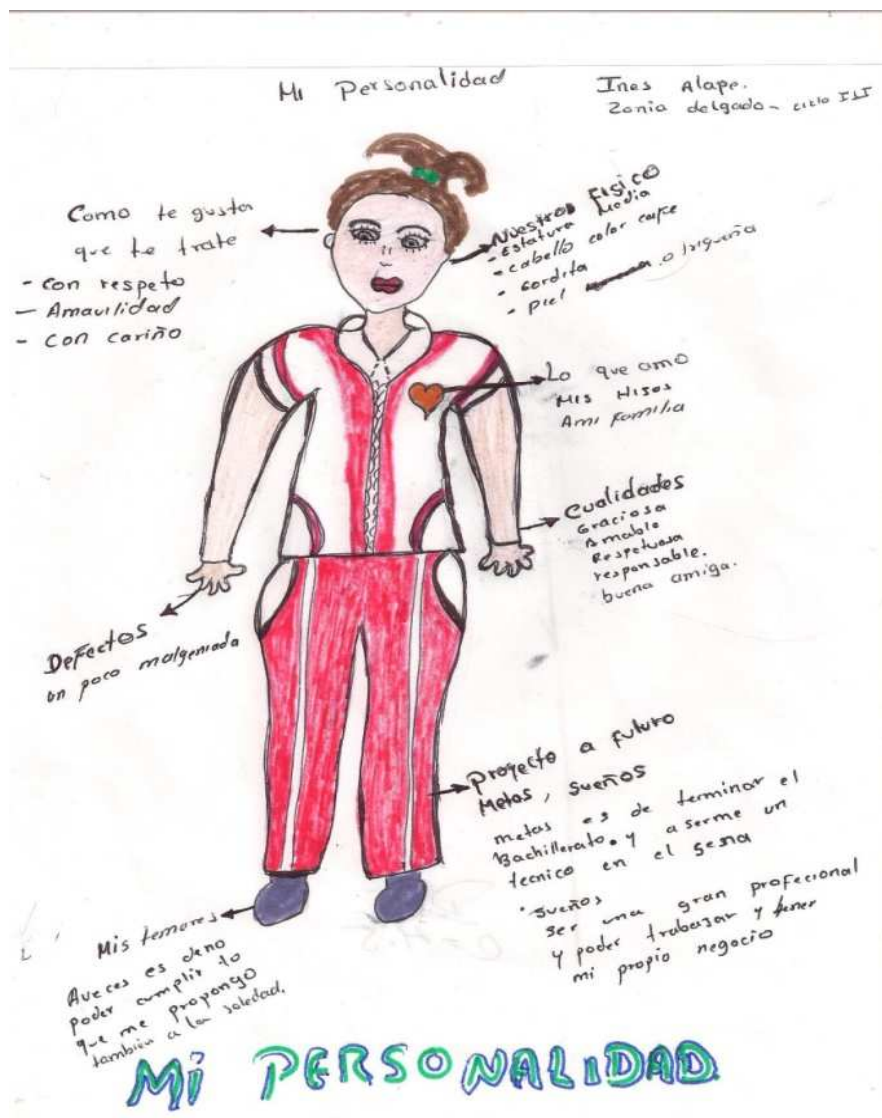 Mi Personalidad
Ines Alape.
Zonia delgado - ciclo III
Como te gusta
que te trate
- con respeto
- Amavilidad
- con cariño
Nuestro Fisico
- Estatura Media
- cabello color cafe
- Gordita
- Piel o trigueña
Lo que amo
Mis Hijos
Ami familia
Cualidades
Graciosa
Amable
Respetuosa
responsable.
buena amiga.
Defectos
un poco malgeniada
Proyecto a futuro
Metas, sueños
metas es de terminar el
Bachillerato. y aserme un
tecnico en el sena
• sueños
ser una gran profecional
y poder trabajar y tener
mi propio negocio
Mis temores
Aveces es deno
poder cumplir lo
que me propongo
también a la soledad.
Mi PERSONALIDAD